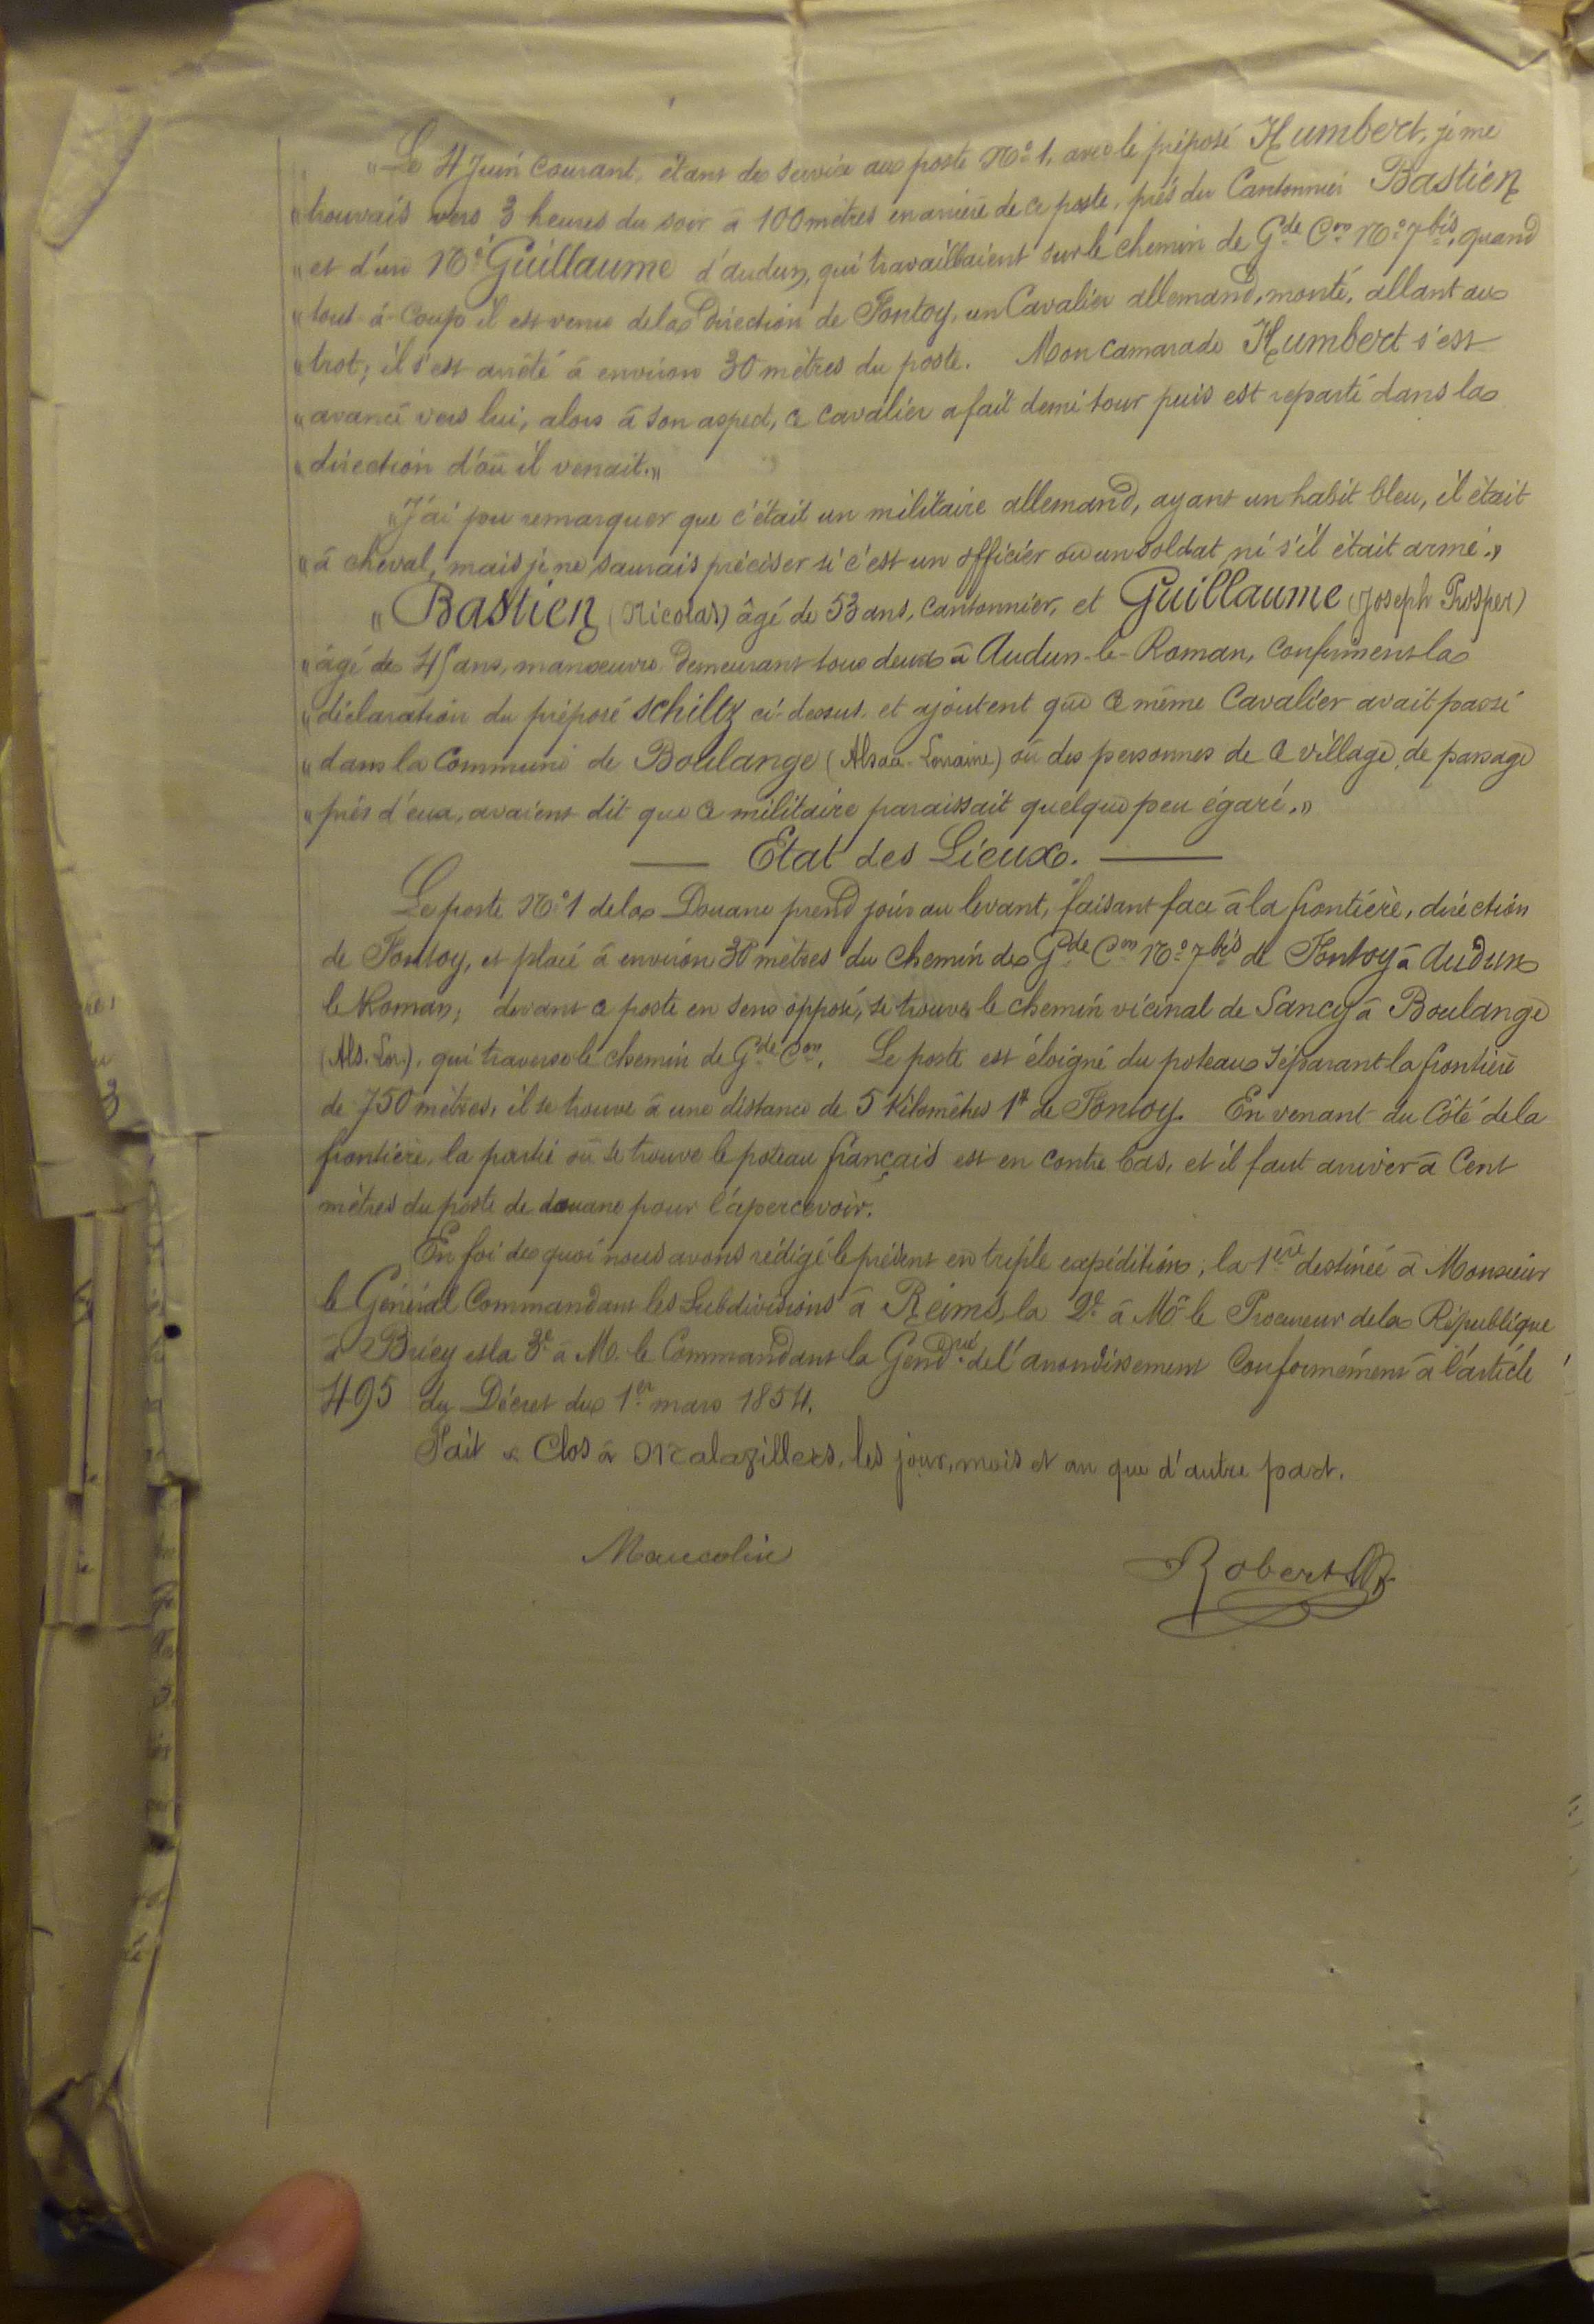 "Le 4 Juin courant, étant de service au poste N° 1, avec le préposé Humbert, je me
"trouvais vers 3 heures du soir à 100 mètres en arrière de ce poste, près du Cantonnier Bastien
"et d'un N.é Guillaume d'Audun, qui travaillaient sur le chemin de Gde Con N° 7 bis, quand
"tout-à-coup il est venu de la Direction de Fontoy, un Cavalier allemand, monté, allant au
"trot; il s'est arrêté à environ 30 mètres du poste. Mon camarade Humbert s'est
"avancé vers lui, alors à son aspect, ce cavalier a fait demi tour puis est reparti dans la
"direction d'où il venait."
"J'ai pu remarquer que c'était un militaire allemand, ayant un habit bleu, il était
"à cheval, mais je ne saurais préciser si c'est un officier ou un soldat, ni s'il était armé."
"Bastien (Nicolas) âgé de 53 ans, cantonnier, et Guillaume (Joseph Prosper)
"âgé de 45 ans, manœuvre demeurant tous deux à Audun-le-Roman, confirment la
"déclaration du préposé Schiltz ci-dessus, et ajoutent que ce même Cavalier avait passé
"dans la Commune de Boulange (Alsace-Lorraine) où des personnes de ce village, de passage
"près d'eux, avaient dit que ce militaire paraissait quelque peu égaré."
Etat des Lieux.
Le poste N° 1 de la Douane prend jour au levant, faisant face à la frontière, direction
de Fontoy, et placé à environ 30 mètres du chemin de Gde Con N° 7 bis de Fontoy à Audun
le Roman; devant ce poste en sens opposé, se trouve le chemin vicinal de Sancy à Boulange
(Als. Lor.), qui traverse le chemin de Gde Con. Le poste est éloigné du poteau séparant la frontière
de 750 mètres, il se trouve à une distance de 5 Kilomètres 1/2 de Fontoy. En venant du côté de la
frontière, la partie où se trouve le poteau français est en contre bas, et il faut arriver à Cent
mètres du poste de douane pour l'apercevoir.
En foi de quoi nous avons rédigé le présent en triple expédition, la 1ère destinée à Monsieur
le Général Commandant les Subdivisions à Reims, la 2e à Mr le Procureur de la République
à Briey et la 3e à M. le Commandant la Gendrie de l'arrondissement conformément à l'article
495 du Décret du 1er mars 1854.
Fait & Clos à Malavillers, les jour, mois et an que d'autre part.
Maucolin Robert